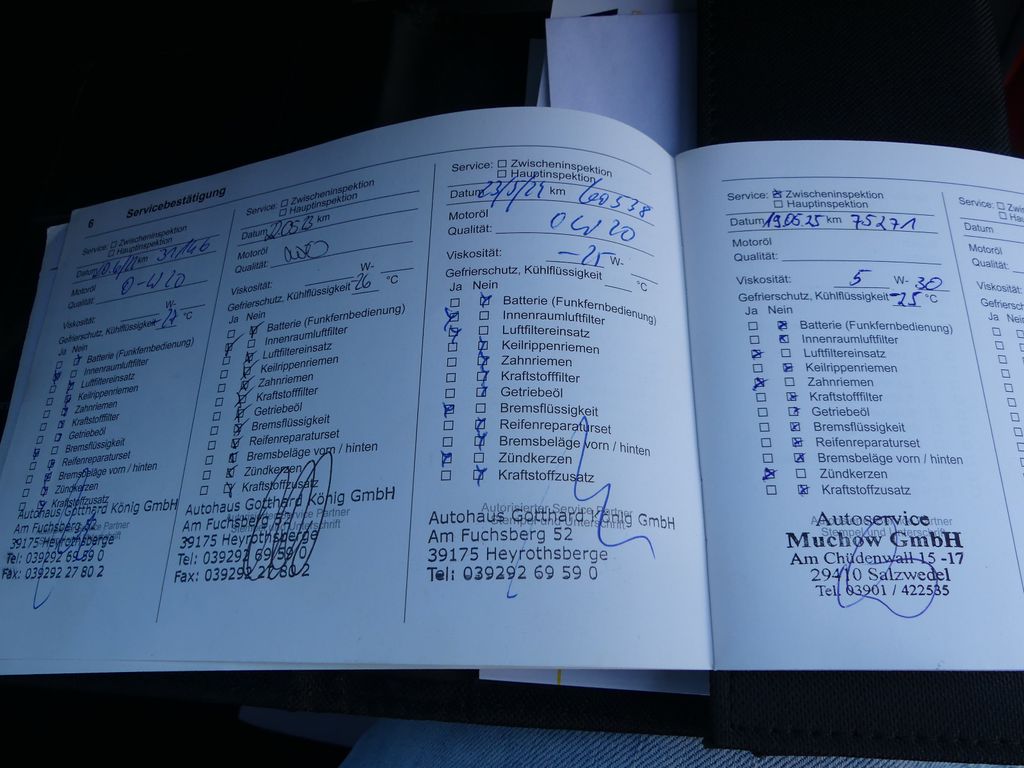 6 Servicebestätigung
Service: Zwischeninspektion
Hauptinspektion
Datum km 31146
Motoröl
Qualität: 0-W20
Viskosität: W-
Gefrierschutz, Kühlflüssigkeit °C
Ja Nein
Batterie (Funkfernbedienung)
Innenraumluftfilter
Luftfiltereinsatz
Keilrippenriemen
Zahnriemen
Kraftstofffilter
Getriebeöl
Bremsflüssigkeit
Reifenreparaturset
Bremsbeläge vorn / hinten
Zündkerzen
Kraftstoffzusatz
Autohaus Gotthard König GmbH
Am Fuchsberg 52
39175 Heyrothsberge
Tel: 039292 69 59 0
Fax: 039292 27 80 2
Service: Zwischeninspektion
Hauptinspektion
Datum km
Motoröl
Qualität:
Viskosität: W-
Gefrierschutz, Kühlflüssigkeit -26 °C
Ja Nein
Batterie (Funkfernbedienung)
Innenraumluftfilter
Luftfiltereinsatz
Keilrippenriemen
Zahnriemen
Kraftstofffilter
Getriebeöl
Bremsflüssigkeit
Reifenreparaturset
Bremsbeläge vorn / hinten
Zündkerzen
Kraftstoffzusatz
Autohaus Gotthard König GmbH
Am Fuchsberg 52
39175 Heyrothsberge
Tel: 039292 69 59 0
Fax: 039292 27 80 2
Service: Zwischeninspektion
Hauptinspektion
Datum 23/5/24 km 69538
Motoröl
Qualität: 0W20
Viskosität: -25 W-
Gefrierschutz, Kühlflüssigkeit °C
Ja Nein
Batterie (Funkfernbedienung)
Innenraumluftfilter
Luftfiltereinsatz
Keilrippenriemen
Zahnriemen
Kraftstofffilter
Getriebeöl
Bremsflüssigkeit
Reifenreparaturset
Bremsbeläge vorn / hinten
Zündkerzen
Kraftstoffzusatz
Autorisierter Service Partner
Stempel und Unterschrift
Autohaus Gotthard König GmbH
Am Fuchsberg 52
39175 Heyrothsberge
Tel: 039292 69 59 0
Service: Zwischeninspektion
Hauptinspektion
Datum 19.05.25 km 75271
Motoröl
Qualität:
Viskosität: 5 W- 30
Gefrierschutz, Kühlflüssigkeit -25 °C
Ja Nein
Batterie (Funkfernbedienung)
Innenraumluftfilter
Luftfiltereinsatz
Keilrippenriemen
Zahnriemen
Kraftstofffilter
Getriebeöl
Bremsflüssigkeit
Reifenreparaturset
Bremsbeläge vorn / hinten
Zündkerzen
Kraftstoffzusatz
Stempel und Unterschrift
Autoservice
Muchow GmbH
Am Chüdenwall 15 -17
29410 Salzwedel
Tel. 03901 / 422535
Service:
Datum
Motoröl
Qualität:
Viskosität: